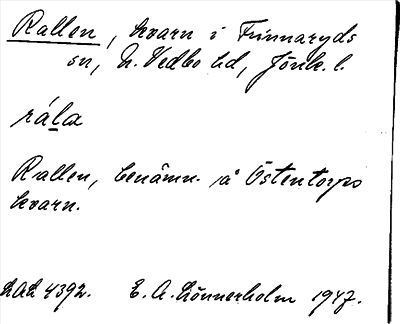 Rallen, kvarn i Finnaryds
sn, N. Vedbo hd, Jönk. l.
rála
Rallen, benämn. på Östentorps
kvarn.
LAL 4392. E. A. Lönnerholm 1947.